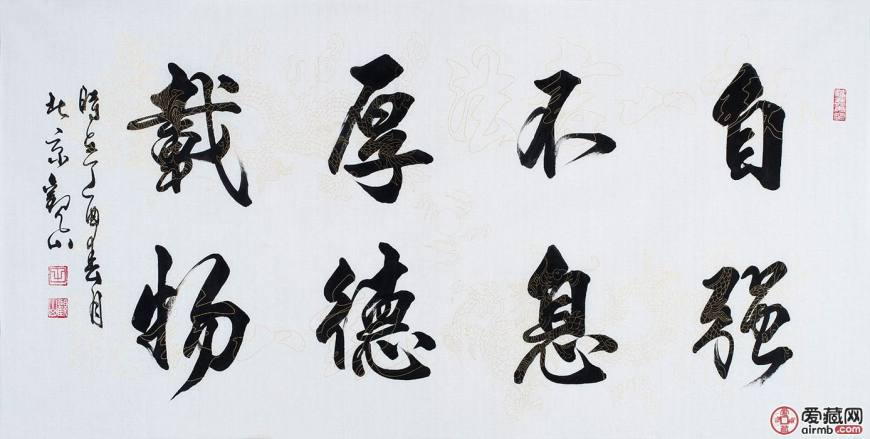 自强
不息
厚德
载物
時在丁酉春月
北京観山
爱藏网
airmb.com